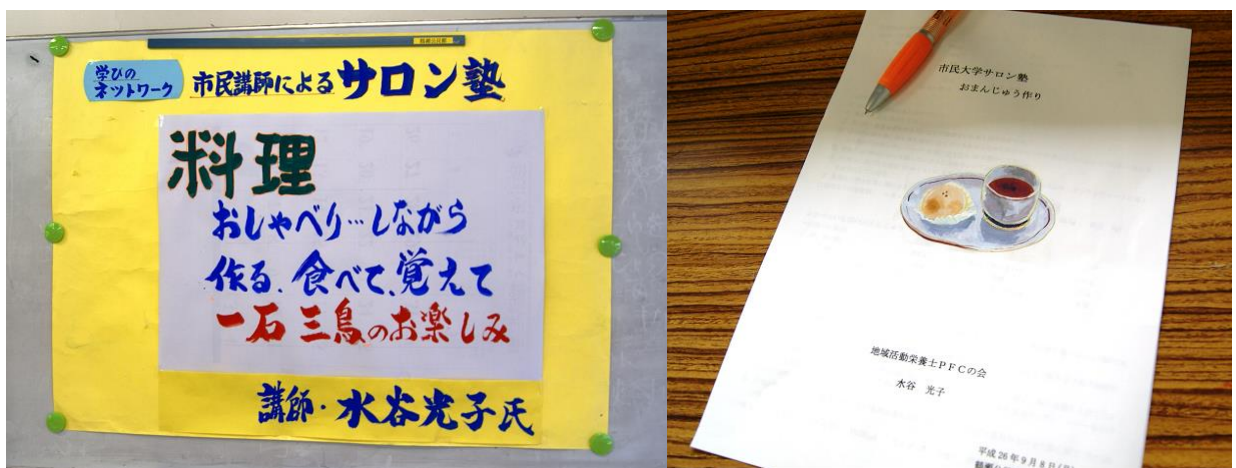 学びの
ネットワーク
市民講師によるサロン塾
料理
おしゃべり…しながら
作る、食べて、覚えて
一石三鳥のお楽しみ
講師・水谷光子氏
市民大学サロン塾
おまんじゅう作り
地域活動栄養士PFCの会
水谷 光子
平成26年9月8日